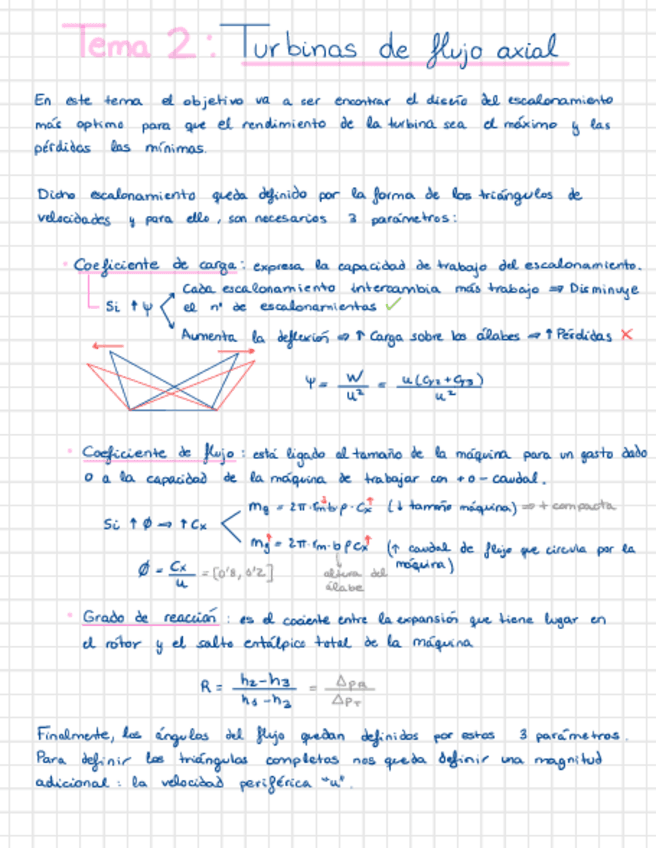 Tema 2: Turbinas de flujo axial
En este tema el objetivo va a ser encontrar el diseño del escalonamiento
más optimo para que el rendimiento de la turbina sea el máximo y las
pérdidas las mínimas.
Dicho escalonamiento queda definido por la forma de los triángulos de
velocidades y para ello, son necesarios 3 parámetros:
Coeficiente de carga: expresa la capacidad de trabajo del escalonamiento.
Cada escalonamiento intercambia más trabajo ⇒ Disminuye
Si ↑ ψ
el nº de escalonamientos ✓
Aumenta la deflexión ⇒ ↑ Carga sobre los álabes ⇒ ↑ Pérdidas ✗
ψ = W/u² = u(cy2+cy3)/u²
Coeficiente de flujo: está ligado al tamaño de la máquina para un gasto dado
o a la capacidad de la máquina de trabajar con + o - caudal.
mg = 2π·rm·b·ρ·Cx↑ (↓ tamaño máquina) ⇒ + compacta
Si ↑ Ø ⇒ ↑ Cx
mg↑ = 2π·rm·b·ρ·Cx↑ (↑ caudal de flujo que circula por la
máquina)
Ø = Cx/u = [0'8, 0'2]
altura del
álabe
Grado de reacción: es el cociente entre la expansión que tiene lugar en
el rótor y el salto entálpico total de la máquina
R = h2-h3/h1-h3 = ΔpR/ΔpT
Finalmente, los ángulos del flujo quedan definidos por estos 3 parámetros.
Para definir los triángulos completos nos queda definir una magnitud
adicional: la velocidad periférica "u".